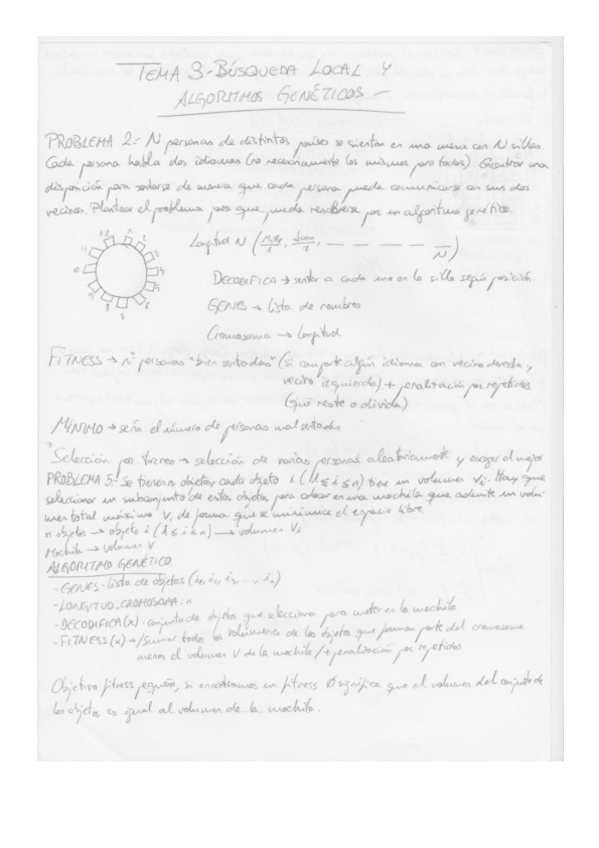 TEMA 3.- BÚSQUEDA LOCAL Y
ALGORITMOS GENÉTICOS.-
PROBLEMA 2.- N personas de distintos países se sientan en una mesa con N sillas.
Cada persona habla dos idiomas (no necesariamente los mismos para todos). Encontrar una
disposición para sentarse de manera que cada persona pueda comunicarse con sus dos
vecinos. Plantear el problema para que pueda resolverse por un algoritmo genético.
Longitud N ( 1 , Juan 2 , — — — — N )
DECODIFICA → sentar a cada uno en la silla según posición
GENES → lista de nombres
Cromosoma → longitud
FITNESS → nº personas "bien sentadas" (si comparte algún idioma con vecino derecho y
vecino izquierda) + penalización por repetidos
(que reste o divida)
MÍNIMO → sería el número de personas mal sentadas
Selección por torneo → selección de varias personas aleatoriamente y escoger el mejor
PROBLEMA 5.- Se tienen n objetos, cada objeto i (1 ≤ i ≤ n) tiene un volumen Vi. Hay que
seleccionar un subconjunto de estos objetos para colocar en una mochila que admite un volu-
men total máximo V, de forma que se minimice el espacio libre.
n objetos → objeto i (1 ≤ i ≤ n) → volumen Vi
Mochila → volumen V
ALGORITMO GENÉTICO
- GENES: lista de objetos (i1, i2, i3, ..., in)
- LONGITUD_CROMOSOMA: n
- DECODIFICA(x): conjunto de objetos que selecciona para meter en la mochila
- FITNESS(x) → /Sumar todos los volúmenes de los objetos que forman parte del cromosoma
menos el volumen V de la mochila/ + penalización por repetidos
Objetivo fitness pequeño, si encontramos un fitness 0 significa que el volumen del conjunto de
los objetos es igual al volumen de la mochila.